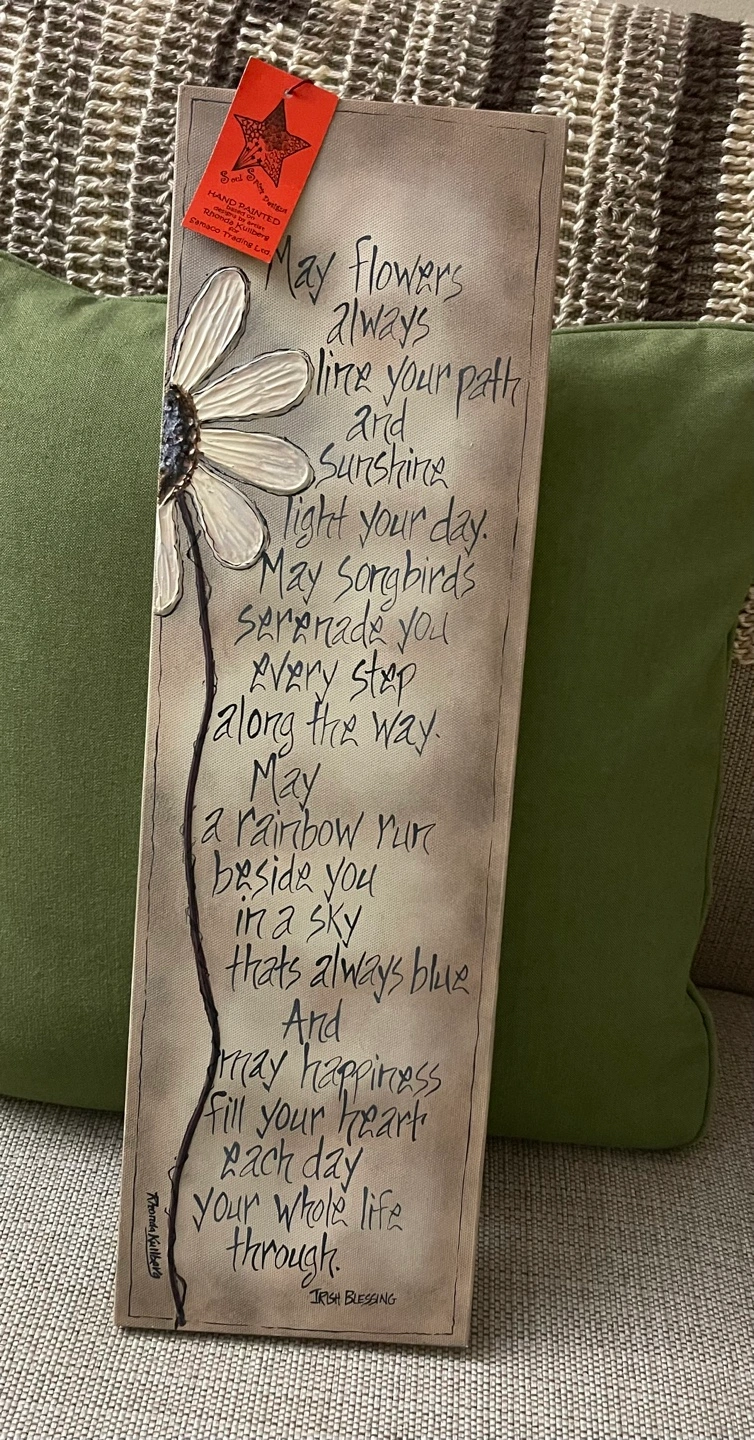 Soul Spirit Designs
HAND PAINTED
based on
designs by artist
Rhonda Kullberg
for
Samaco Trading Ltd
May flowers
always
line your path
and
sunshine
light your day.
May songbirds
serenade you
every step
along the way.
May
a rainbow run
beside you
in a sky
thats always blue
And
may happiness
fill your heart
each day
your whole life
through.
IRISH BLESSING
Rhonda Kullberg